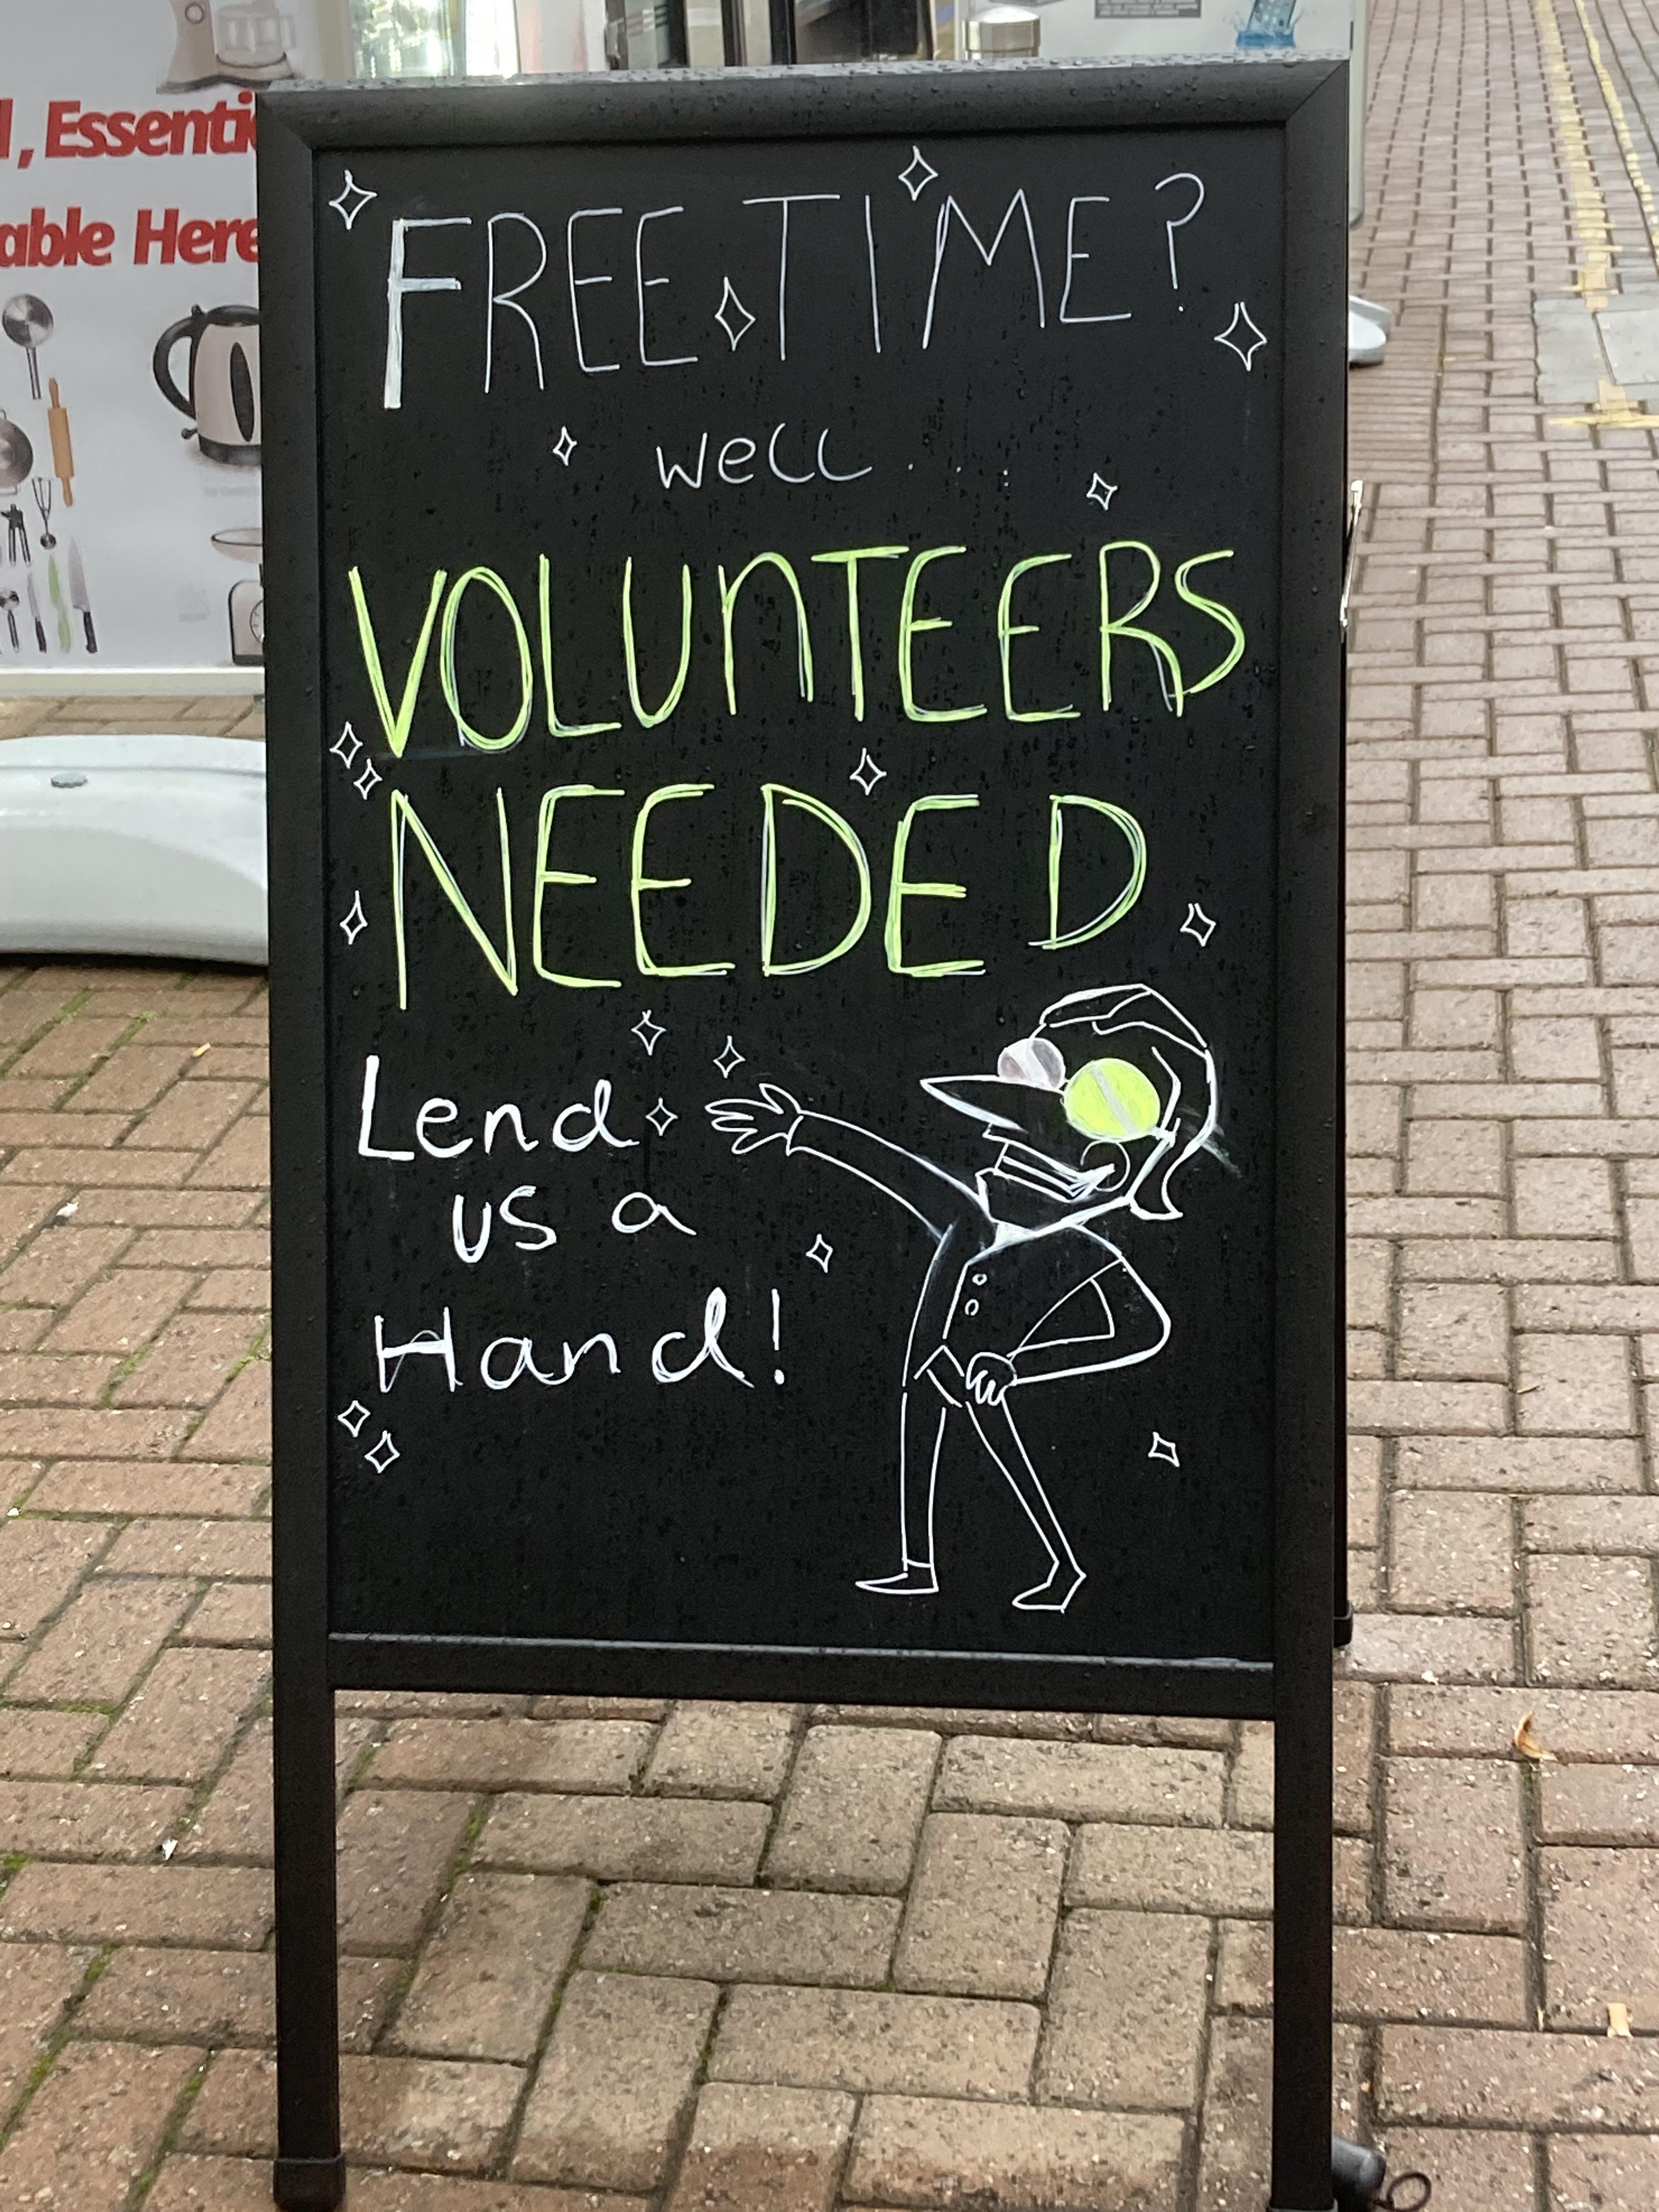 FREE TIME?
well....
VOLUNTEERS
NEEDED
Lend
us a
Hand!
Here